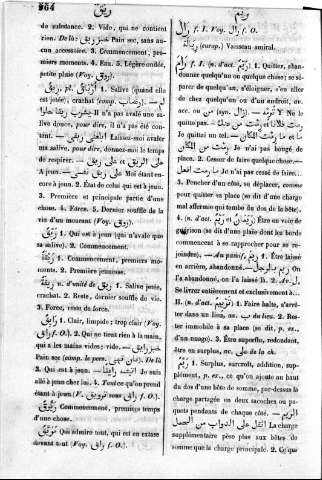 964
ريق
ريم
du substance. 2. Vide, qui ne contient
rien. De là: خبز ريق Pain sec, sans au-
cun accessoire. 3. Commencement, pre-
miers moments. 4. Eau. 5. Légère ondée,
petite pluie (Voy. روق).
ريق 1. Salive (quand elle
est jetée), crachat (comp. رضاب). —
Il n'a pas avalé une sa-
live, pour dire, il n'a pas été con-
tent. — Laissez-moi avaler
ma salive, pour dire, donnez-moi le temps
de respirer. — على الريق et على ريق
A jeun. — Moi étant en-
core à jeun. 2. État de celui qui est à jeun.
3. Première et principale partie d'une
chose. 4. Force. 5. Dernier souffle de la
vie d'un mourant (Voy. روق).
1. Qui est à jeun (qui n'avale que
sa salive). 2. Commencement.
1. Commencement, premiers mo-
ments. 2. Première jeunesse.
ريقة n. d'unité de ريق 1. Salive jetée,
crachat. 2. Reste, dernier souffle de vie.
3. Force, reste de force.
رائق 1. Clair, limpide; trop clair (Voy.
راق f. O.). 2. Qui ne tient rien à la main,
qui a les mains vides; vide. —
Pain sec (comp. le pers. نان تهى). De là
3. Qui est à jeun. — Je suis
allé à jeun chez lui. 4. Tout ce qu'on prend
étant à jeun (Voy. sous راق f. O.).
Commencement, premiers temps
d'une chose.
Qui admire tout, qui est en extase
devant tout (Voy. راق f. O.).
رال f. I. Voy. رال f. O.
(europ.) Vaisseau amiral.
رام f. I. (n. d'act. ريم) 1. Quitter, aban-
donner quelqu'un ou quelque chose; se sé-
parer de quelqu'un, s'éloigner, s'en aller
de chez quelqu'un ou d'un endroit, av.
acc. ou من (syn. زال). — Ne le
quitte pas. — ما رمت من عندك
Je ne t'ai pas quitté. — ما رمت المكان et
ما رمت من المكان Je n'ai pas bougé de
place. 2. Cesser de faire quelque chose. —
ما رمت افعل Je n'ai pas cessé de faire...
3. Pencher d'un côté, se déplacer, comme
pour quitter sa place (se dit d'une charge
mal affermie qui tombe du dos de la bête).
4. (n. d'act. ريم, ريمان) Être en voie de
guérison (se dit d'une plaie dont les bords
commencent à se rapprocher pour se re-
joindre). — Au passif, ريم Être laissé
en arrière, abandonné. — ريم بالرجل On
l'a abandonné, on l'a laissé là. 2. Av. ل.
Se livrer entièrement et exclusivement à...
II. (n. d'act. تريم) 1. Faire halte, s'arrê-
ter dans un lieu, av. ب du lieu. 2. Res-
ter immobile à sa place (se dit, p. ex.,
d'un nuage). 3. Être superflu, redondant,
être en surplus, av. على de la ch.
ريم 1. Surplus, surcroît, addition, sup-
plément, p. ex., ce qu'on ajoute en haut
du dos d'une bête de somme, par-dessus la
charge partagée en deux sacoches ou pa-
quets pendants de chaque côté. — الريم
اثقل على الدواب من الحمل La charge
supplémentaire pèse plus aux bêtes de
somme que la charge principale. 2. Ce que